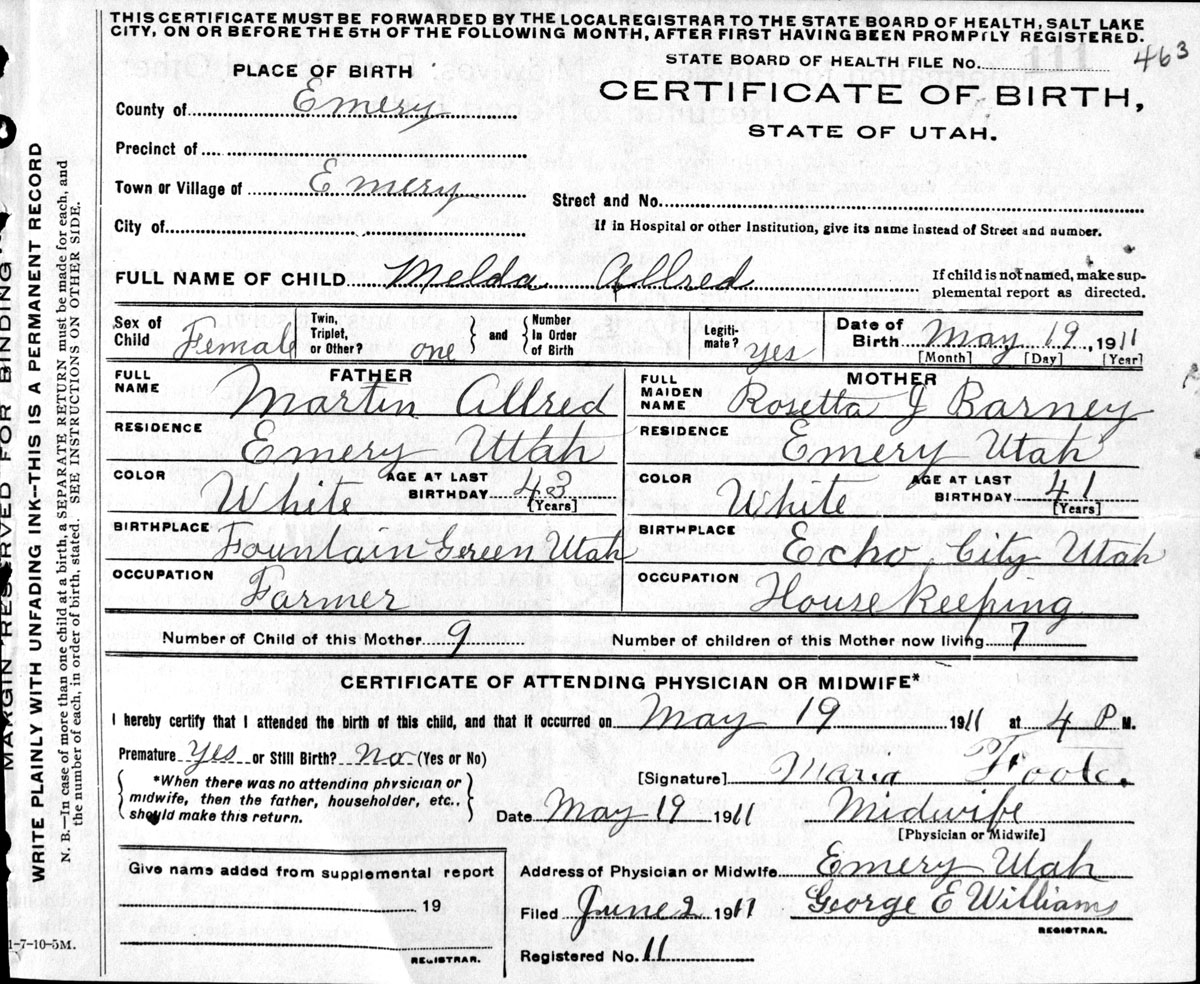 THIS CERTIFICATE MUST BE FORWARDED BY THE LOCAL REGISTRAR TO THE STATE BOARD OF HEALTH, SALT LAKE
CITY, ON OR BEFORE THE 5TH OF THE FOLLOWING MONTH, AFTER FIRST HAVING BEEN PROMPTLY REGISTERED.
STATE BOARD OF HEALTH FILE No. 463
PLACE OF BIRTH
CERTIFICATE OF BIRTH,
STATE OF UTAH.
County of Emery
Precinct of
Town or Village of Emery
Street and No.
City of
If in Hospital or other Institution, give its name instead of Street and number.
FULL NAME OF CHILD Melda Allred
If child is not named, make sup-
plemental report as directed.
Sex of Child Female
Twin, Triplet, or Other? one
and
Number In Order of Birth
Legiti-mate? yes
Date of Birth May 19, 1911
[Month] [Day] [Year]
FATHER
FULL NAME Martin Allred
RESIDENCE Emery Uttah
COLOR White
AGE AT LAST BIRTHDAY 43
[Years]
BIRTHPLACE Fountain Green Utah
OCCUPATION Farmer
MOTHER
FULL MAIDEN NAME Rosetta J Barney
RESIDENCE Emery Utah
COLOR White
AGE AT LAST BIRTHDAY 41
[Years]
BIRTHPLACE Echo City Utah
OCCUPATION House Keeping
Number of Child of this Mother 9
Number of children of this Mother now living 7
CERTIFICATE OF ATTENDING PHYSICIAN OR MIDWIFE*
I hereby certify that I attended the birth of this child, and that it occurred on May 19 1911 at 4 P M.
Premature yes or Still Birth? No (Yes or No)
*When there was no attending physician or
midwife, then the father, householder, etc.,
should make this return.
[Signature] Maria Foote.
Date May 19 1911 Midwife
[Physician or Midwife]
Give name added from supplemental report
19
REGISTRAR.
Address of Physician or Midwife Emery Utah
Filed June 2 1911 George E Williams
REGISTRAR.
Registered No. 11
1-7-10-5M.
MARGIN RESERVED FOR BINDING
WRITE PLAINLY WITH UNFADING INK—THIS IS A PERMANENT RECORD
N. B.—In case of more than one child at a birth, a SEPARATE RETURN must be made for each, and
the number of each, in order of birth, stated. SEE INSTRUCTIONS ON OTHER SIDE.